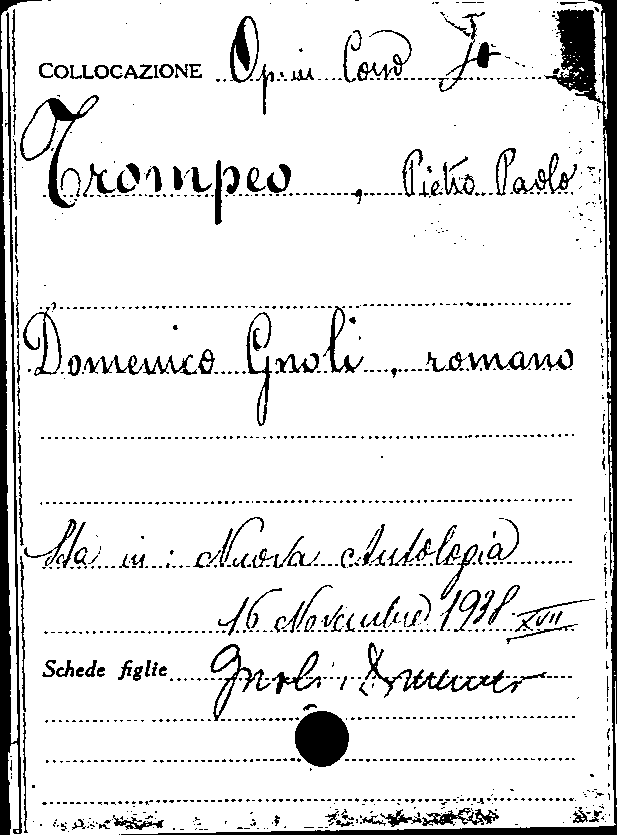 COLLOCAZIONE Op. in Corso
Trompeo, Pietro Paolo
Domenico Gnoli, romano
Sta in: Nuova Antologia
16 Novembre 1938 XVII
Schede figlie Gnoli, Domenico